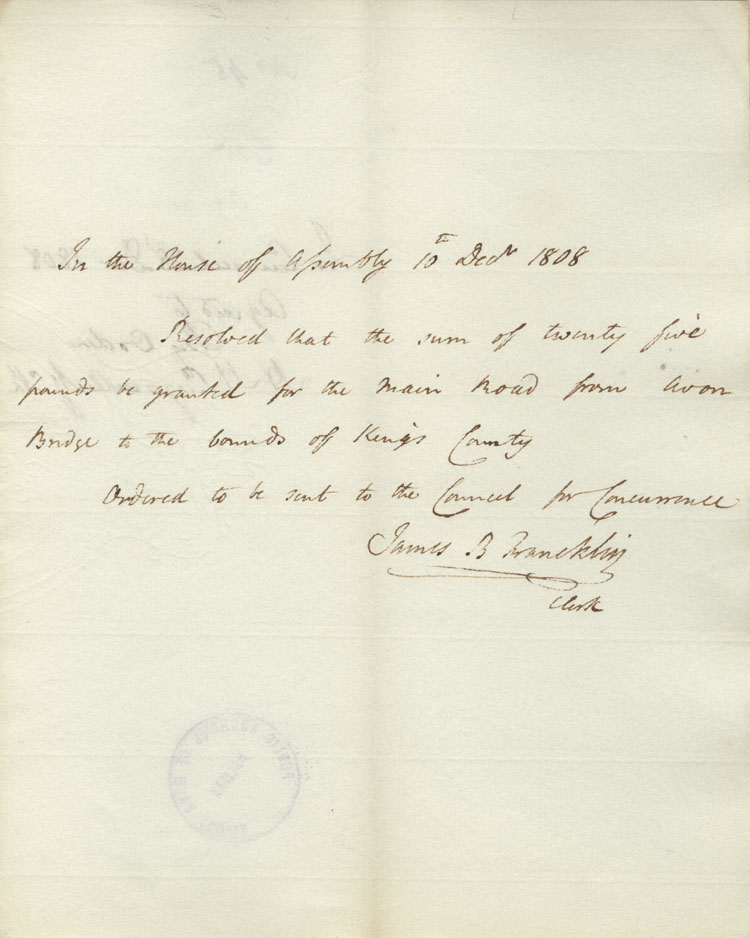 In the House of Assembly 10th Decr 1808
Resolved that the sum of twenty five
pounds be granted for the main Road from Avon
Bridge to the bounds of Kings County
Ordered to be sent to the Council for Concurrence
James B Francklin
Clerk